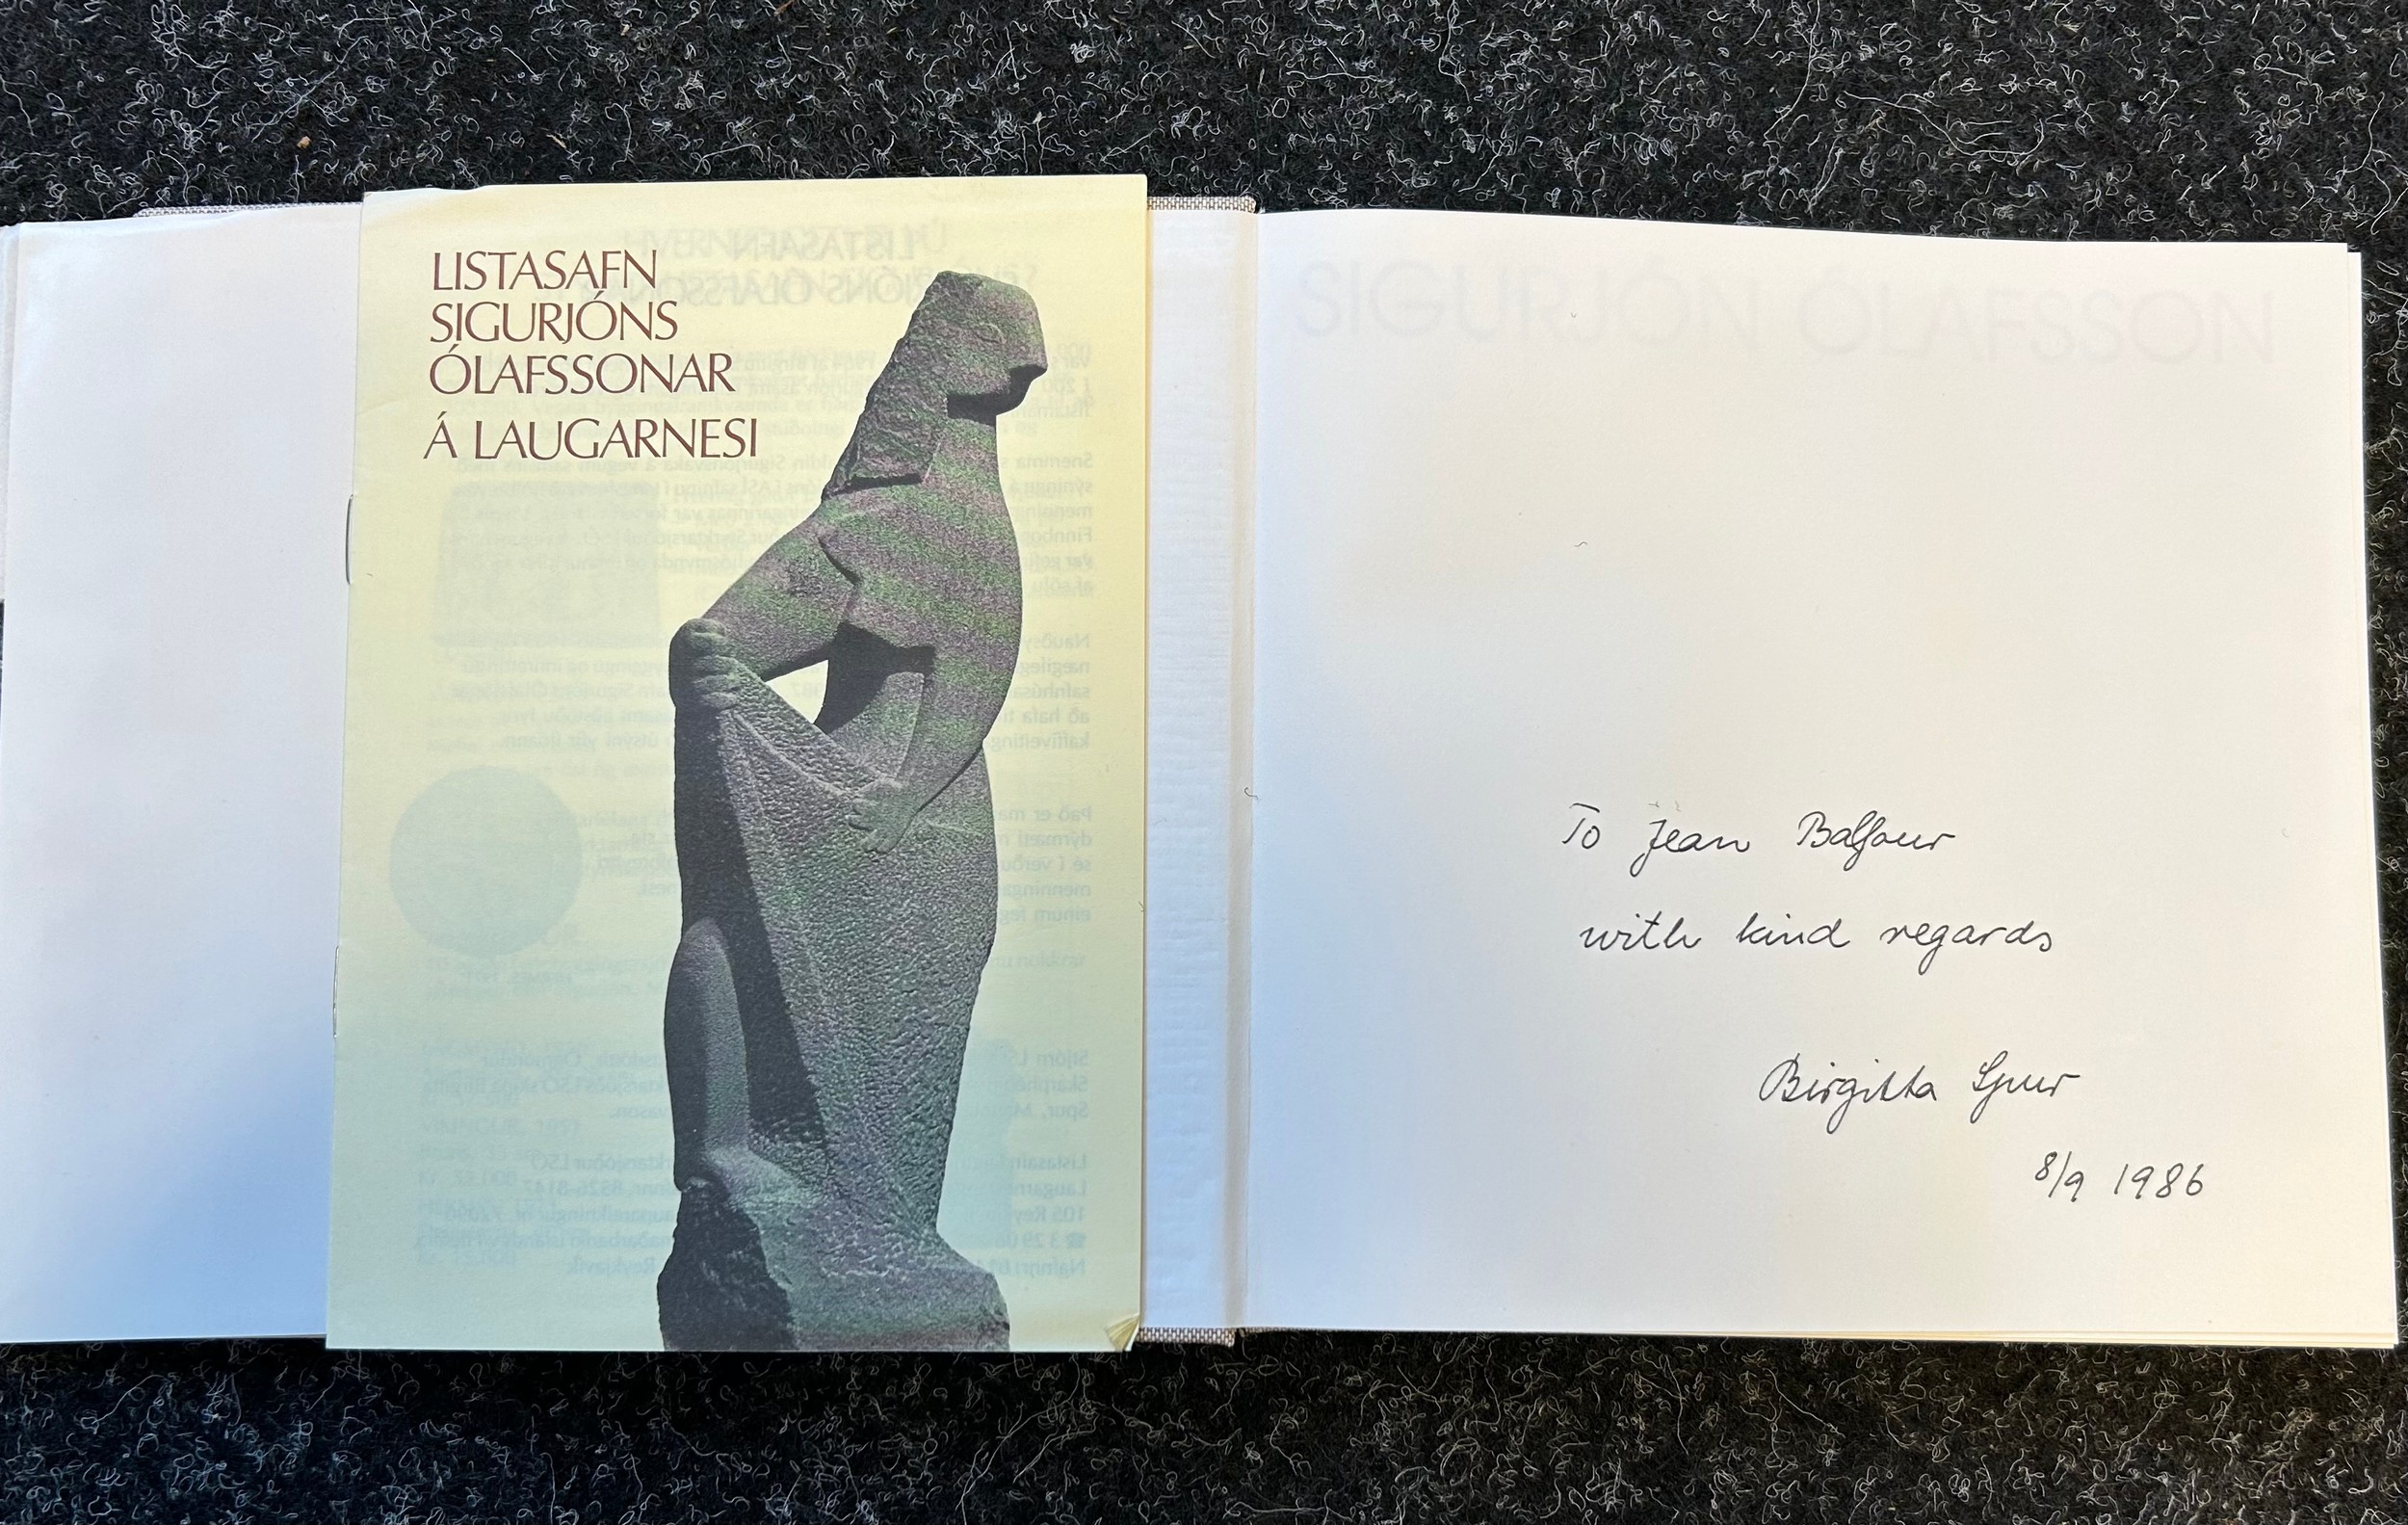 LISTASAFN
SIGURJÓNS
ÓLAFSSONAR
Á LAUGARNESI
SIGURJÓN ÓLAFSSON
To Jean Balfour
with kind regards
Birgitta Spur
8/9 1986